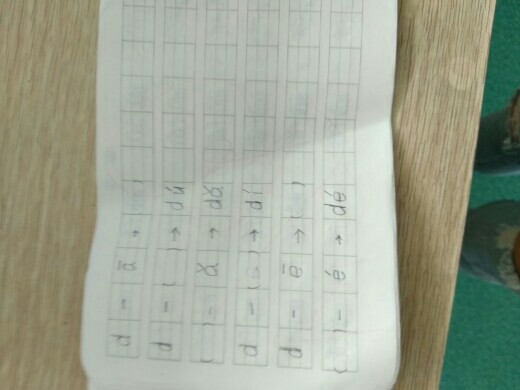 d – ā → ( )
d – ( ) → dú
( ) – ǎ → dǎ
d – ( ) → dí
d – ē → ( )
( ) – é → dé